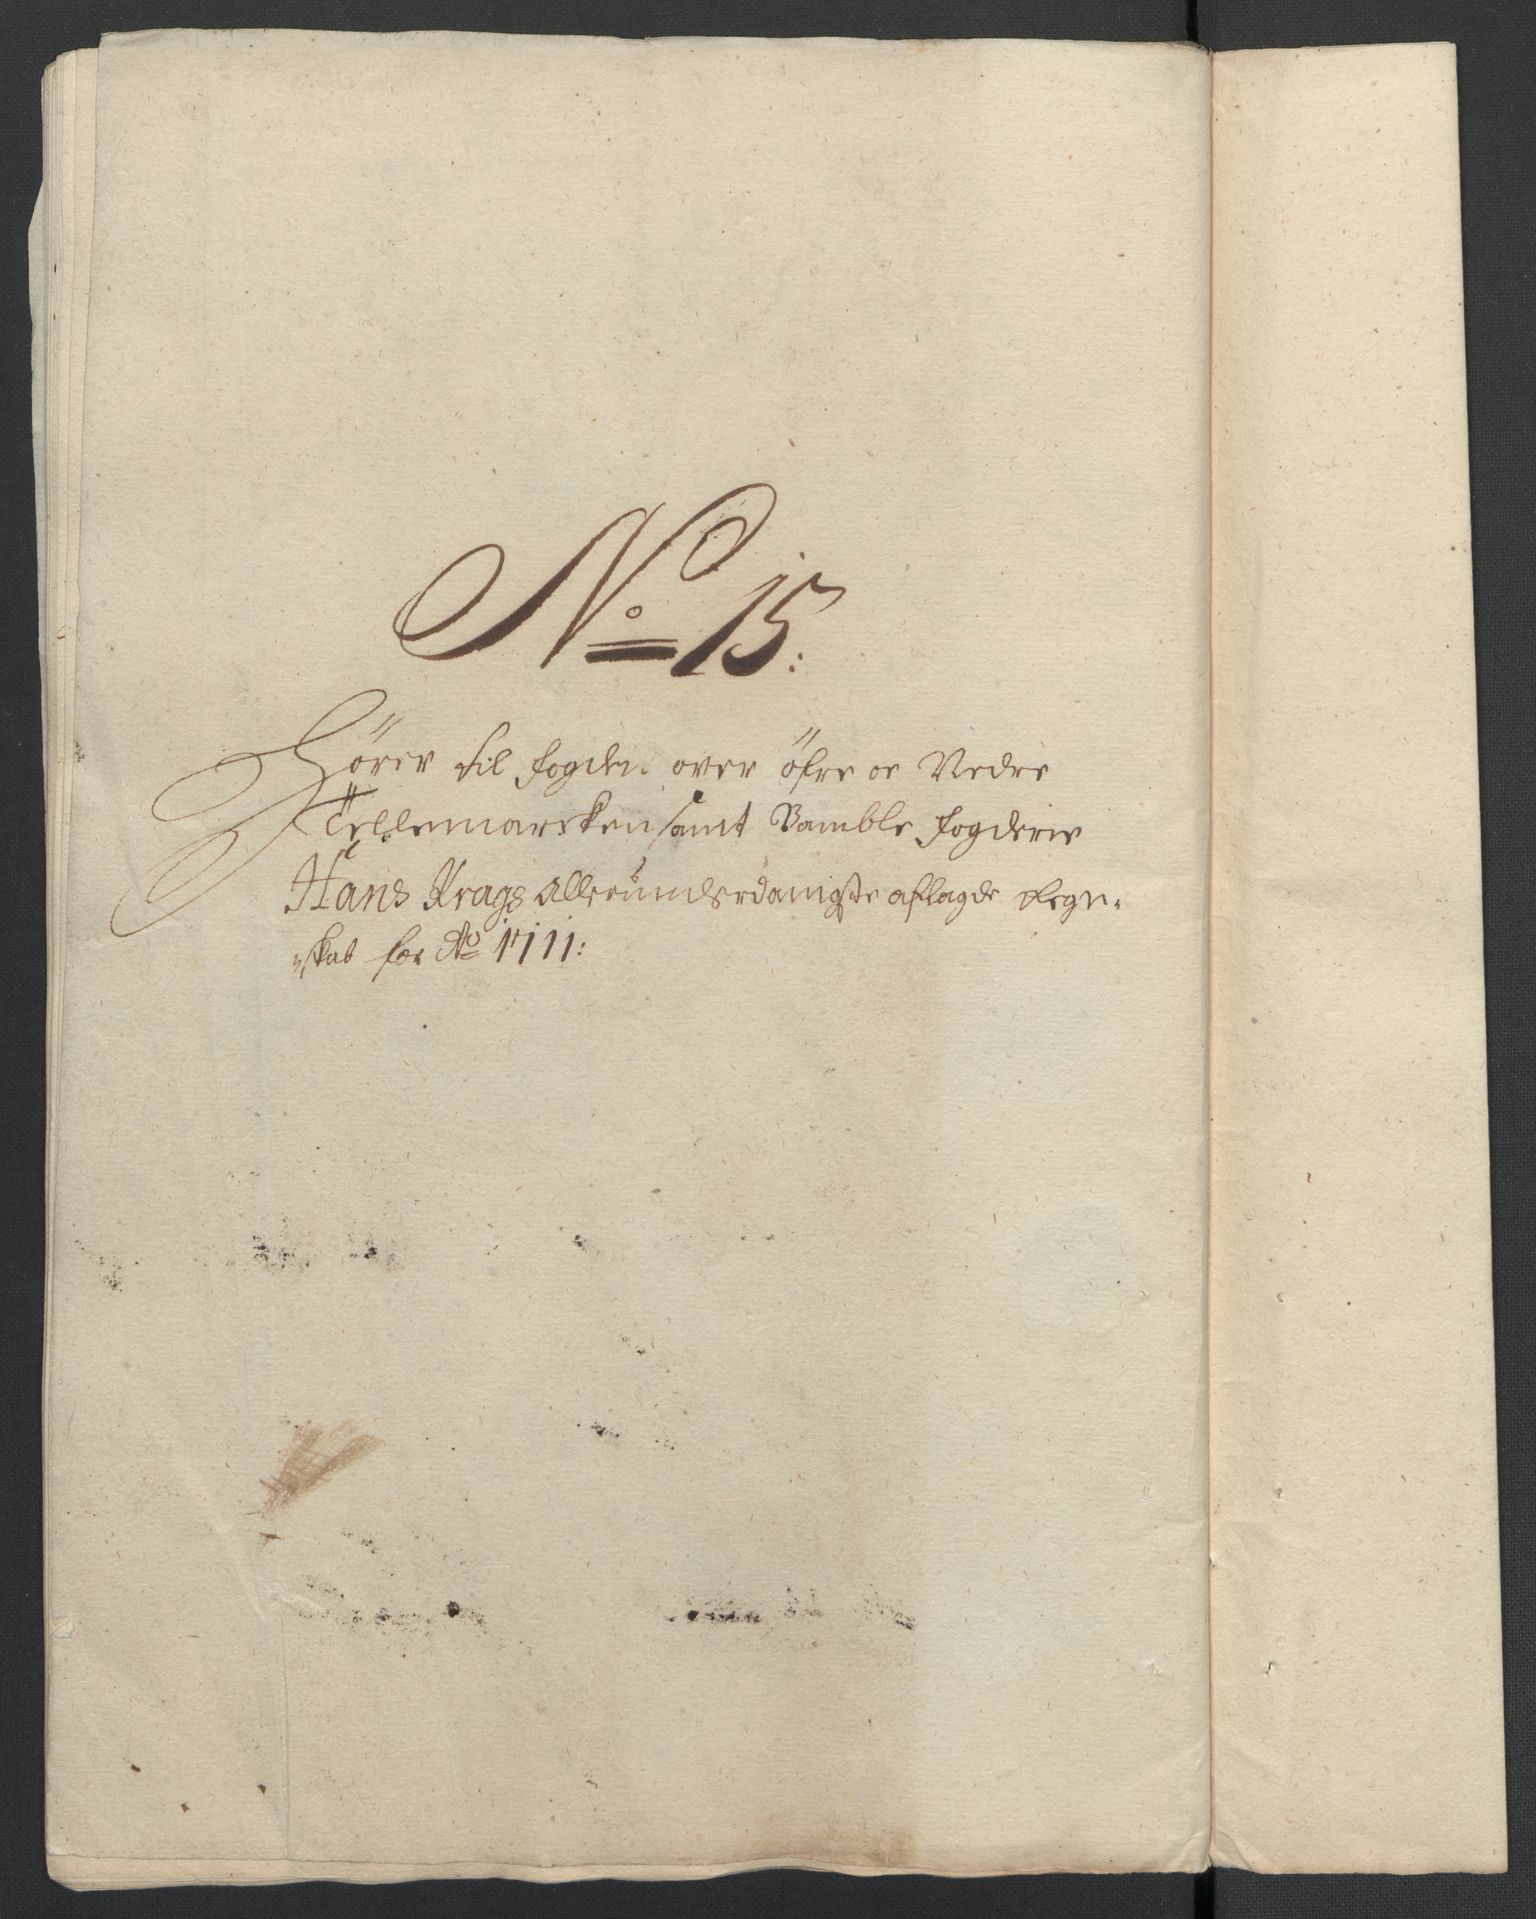 No 15:
Hörer til fogden over öfre oc Nedre
Tellemarcken samt Bamble fogderie
Hans Krags Allerunderdanigste aflagde Regn-
skab for Ao 1711: